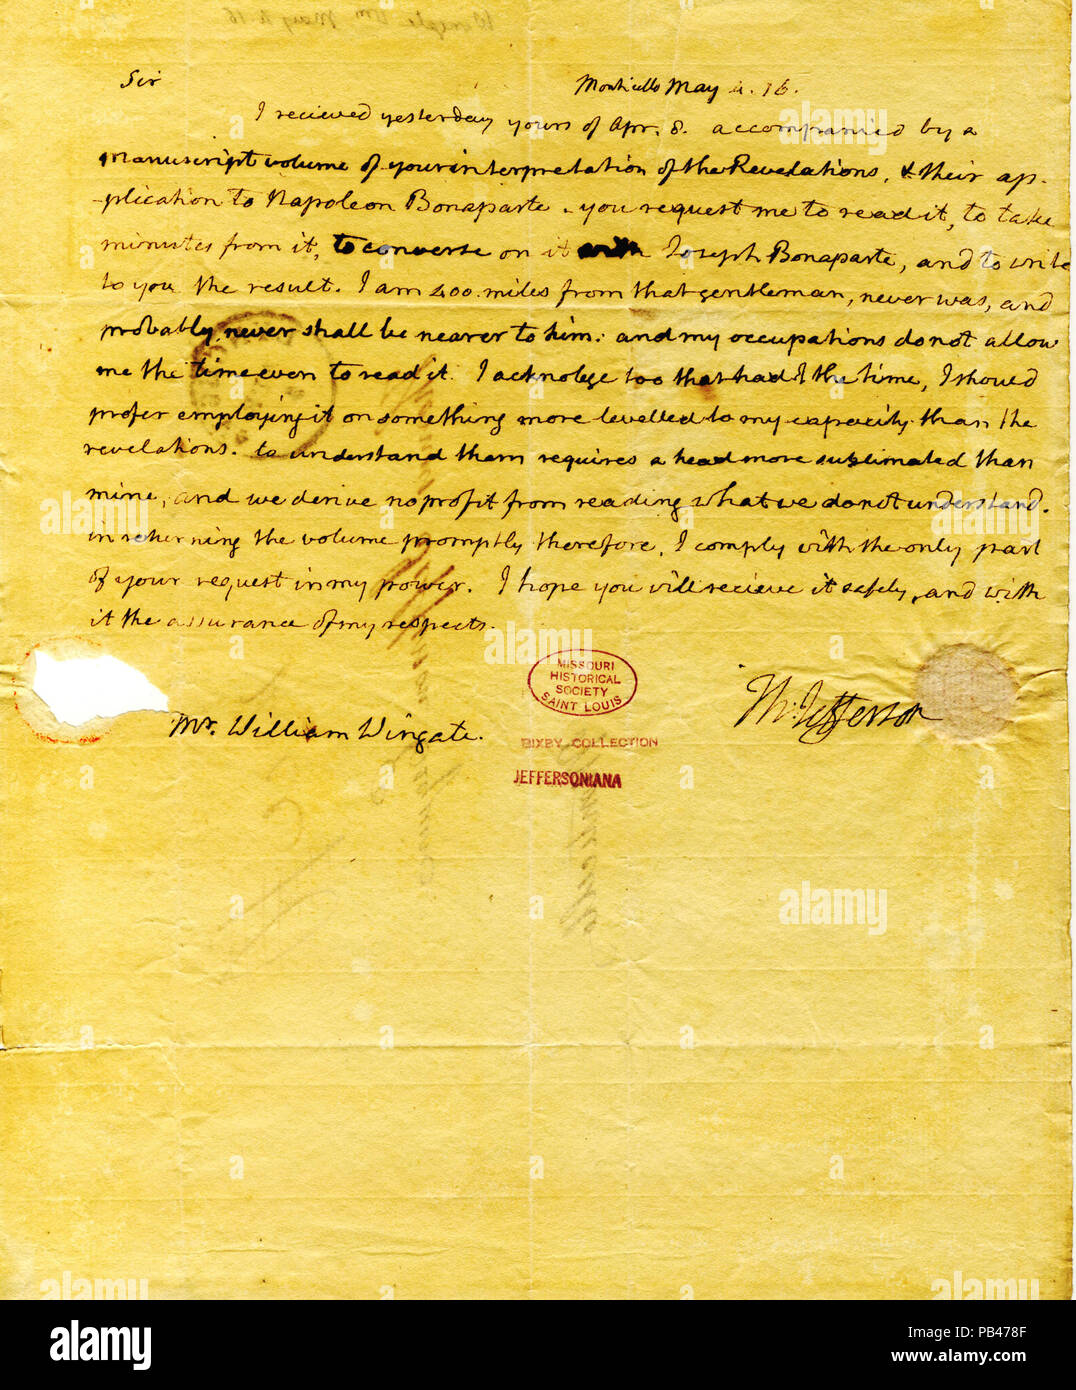 Sir
Monticello May 4. 16.
I recieved yesterday yours of Apr. 8. accompanied by a
manuscript volume of your interpretation of the Revelations, & their ap-
-plication to Napoleon Bonaparte. you request me to read it, to take
minutes from it, to converse on it with Joseph Bonaparte, and to write
to you the result. I am 400 miles from that gentleman, never was, and
probably, never shall be nearer to him: and my occupations do not allow
me the time even to read it. I acknolege too that had I the time, I should
prefer employing it on something more levelled to my capacity than the
revelations. to understand them requires a head more sublimated than
mine, and we derive no profit from reading what we do not understand.
in returning the volume promptly therefore, I comply with the only part
of your request in my power. I hope you will recieve it safely, and with
it the assurance of my respects.
Th: Jefferson
Mr. William Wingate.
MISSOURI
HISTORICAL
SOCIETY
SAINT LOUIS
BIXBY COLLECTION
JEFFERSONIANA
alamy
alamy
alamy
alamy
alamy
alamy
alamy
alamy
alamy
alamy
alamy
Image ID: PB478F
www.alamy.com